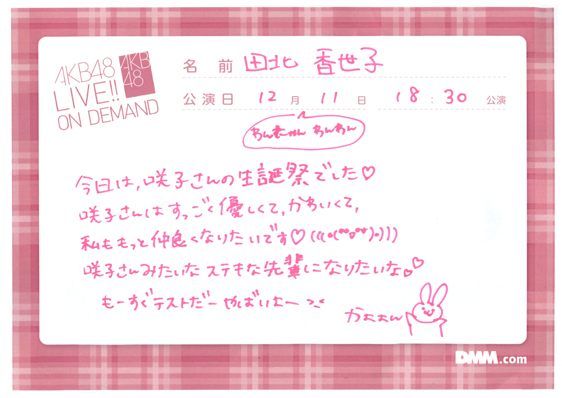 AKB48
LIVE!!
ON DEMAND
AKB
48
名前 田北 香世子
公演日 12月 11日 18:30 公演
わんにゃん わんわん
今日は,咲子さんの生誕祭でした♡
咲子さんはすっごく優しくて,かわいくて,
私ももっと仲良くなりたいです♡
咲子さんみたいな ステキな先輩になりたいな。♡
もーすぐテストだー やばいよー >.<
かよよん
DMM.com